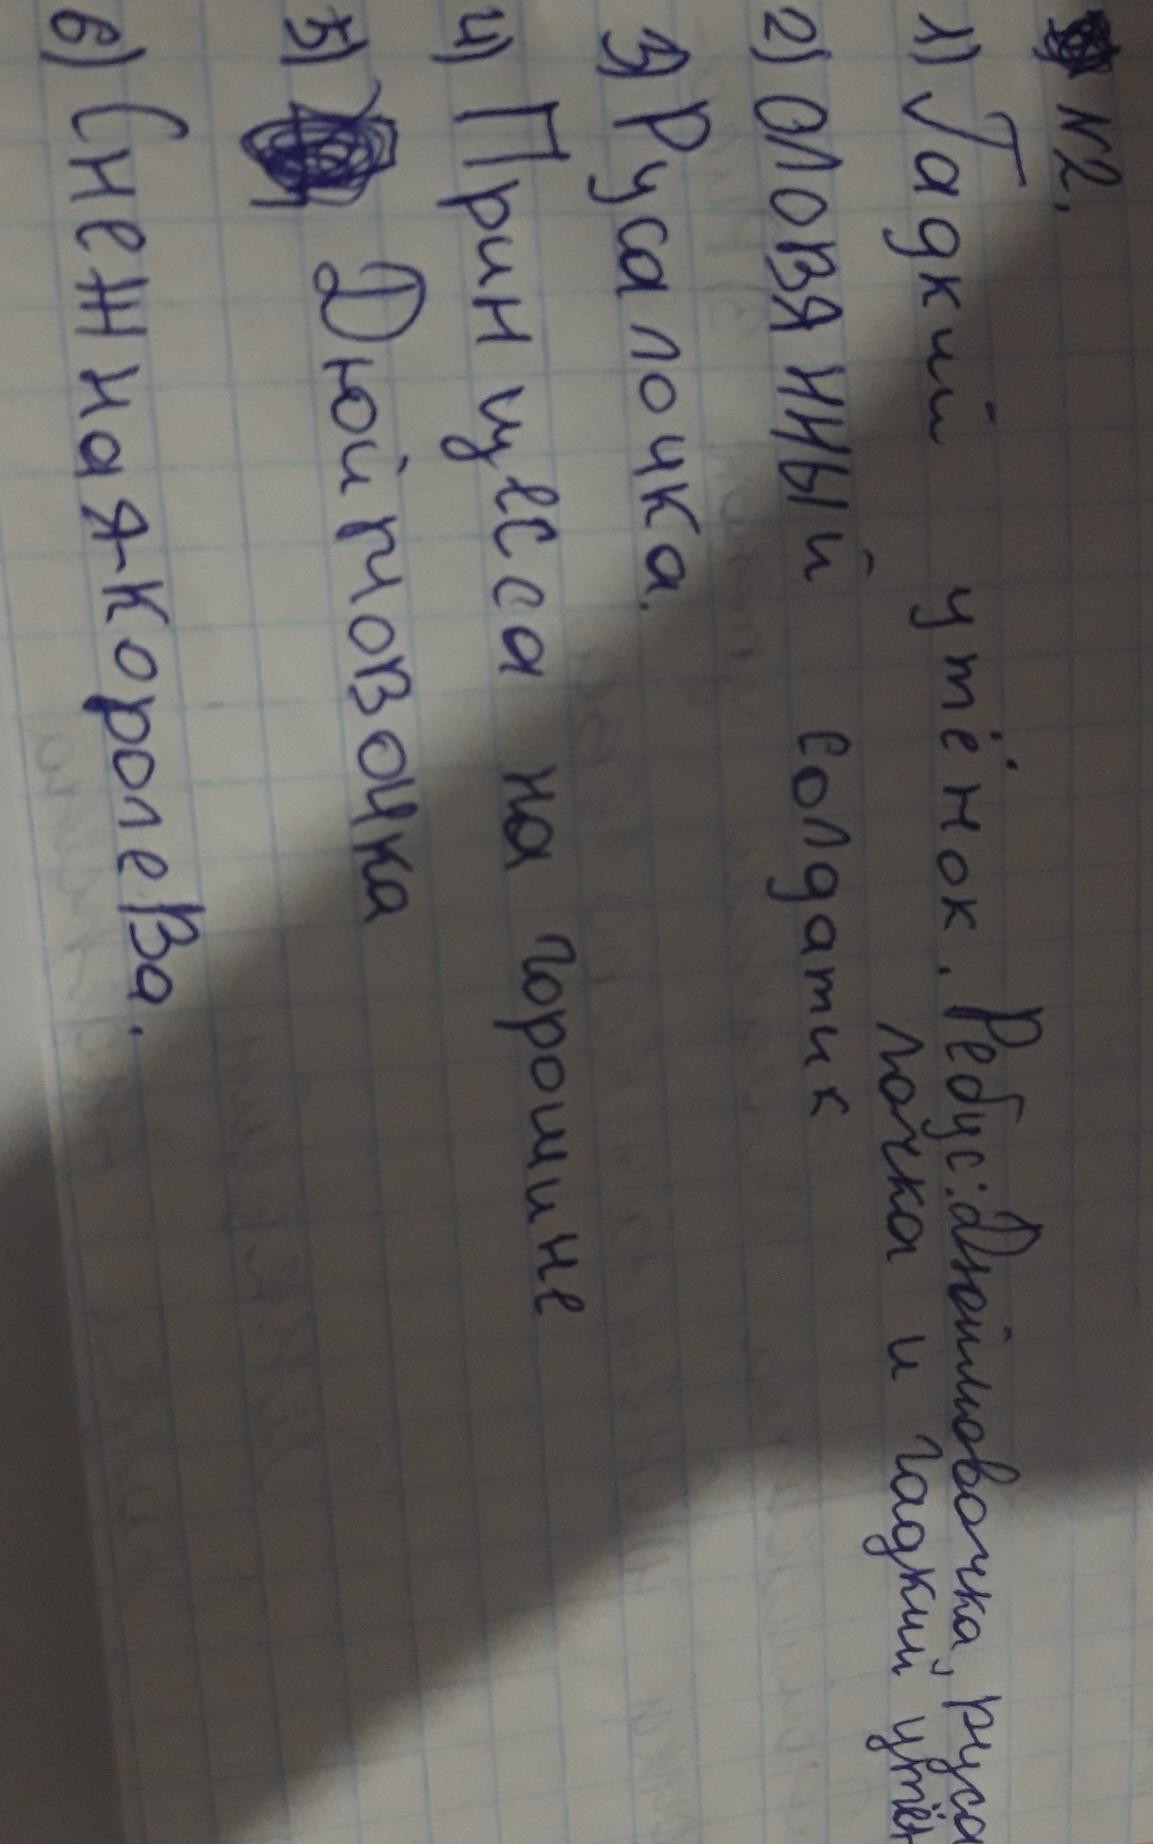 №2.
1) Гадкий утёнок. Ребус: Дюймовочка, руса
лочка и гадкий утён
2) оловянный солдатик
3) Русалочка.
4) Принцесса на горошине
5) Дюймовочка
6) Снежная королева.